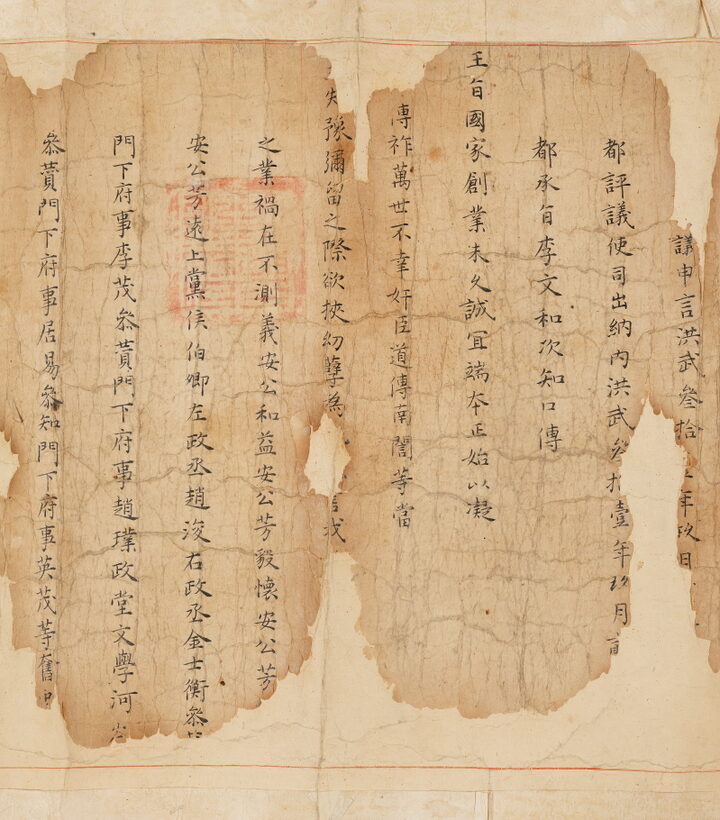 議申言洪武叁拾年玖月
都評議使司出納內洪武叁拾壹年玖月
都承旨李文和次知口傳
王旨國家創業未久誠宜端本正始以凝
傳祚萬世不幸奸臣道傳南誾等當
失豫彌留之際欲挾幼孽爲言戕
之業禍在不測義安公和益安公芳毅懷安公芳
安公芳遠上黨侯伯卿左政丞趙浚右政丞金士衡叅
門下府事李茂叅贊門下府事趙璞政堂文學河崙
叅贊門下府事居易叅知門下府事英茂等奮